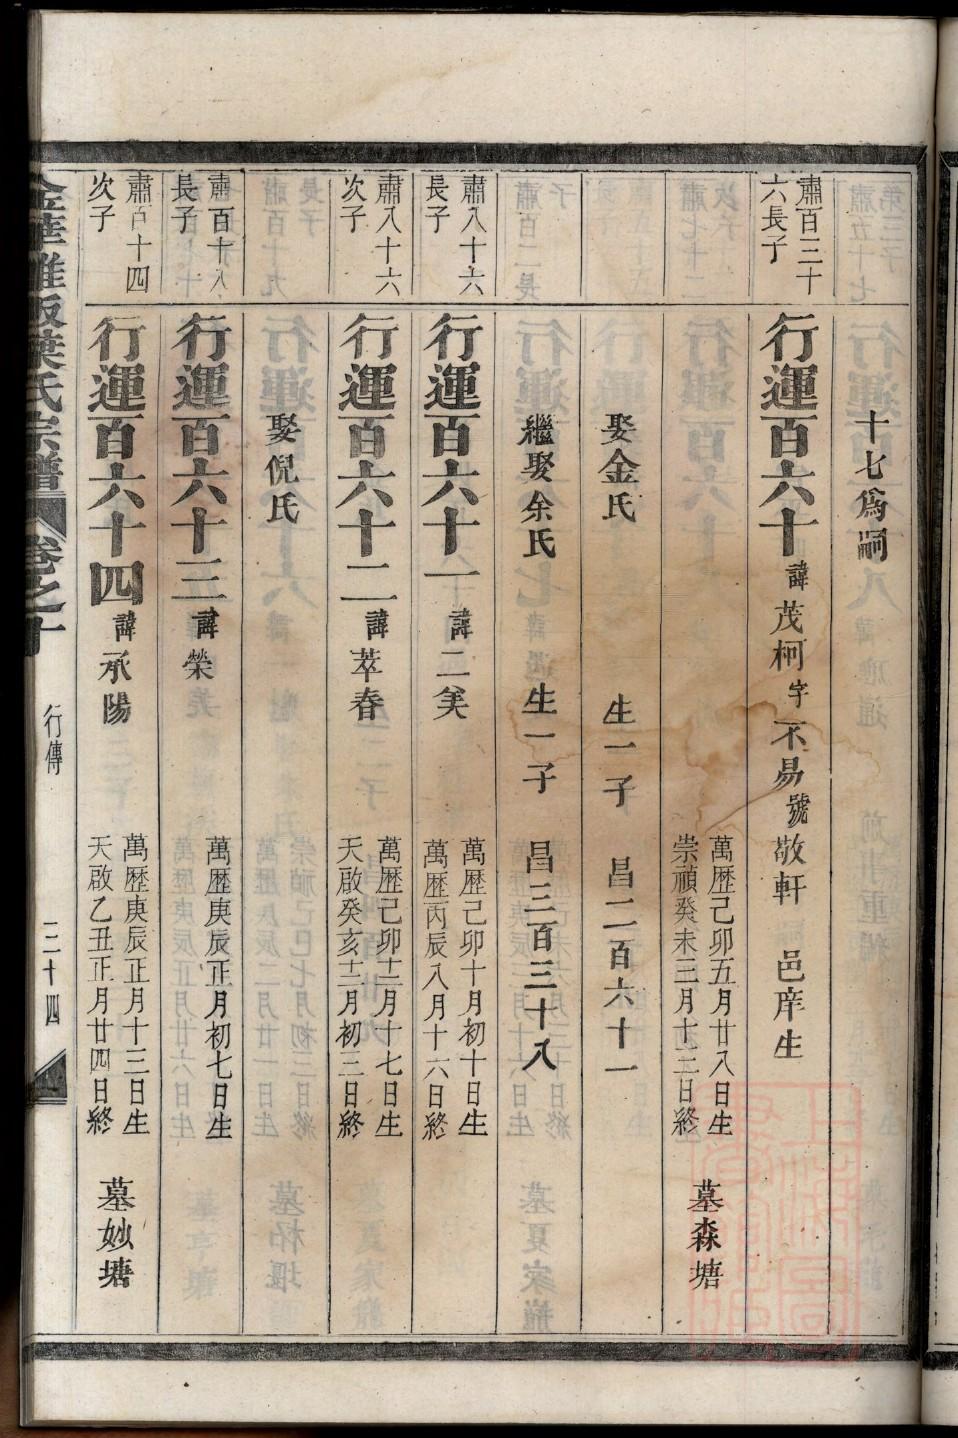 十七爲嗣
肅百三十
六長子
行運百六十諱茂柯字不易號敬軒 邑庠生
萬歷己卯五月廿八日生
崇禎癸未三月十三日終
墓森塘
娶金氏 生一子 昌二百六十一
繼娶余氏 生一子 昌三百三十八
肅八十六
長子
行運百六十一諱二美
萬歷己卯十月初十日生
萬歷丙辰八月十六日終
肅八十六
次子
行運百六十二諱萃春
萬歷己卯十二月十七日生
天啟癸亥十二月初三日終
娶倪氏
墓柘堰
肅百十八
長子
行運百六十三諱榮
萬歷庚辰正月初七日生
肅百十四
次子
行運百六十四諱承陽
萬歷庚辰正月十三日生
天啟乙丑正月廿四日終
墓妙塘
葉氏宗譜 卷之十 行傳 三十四